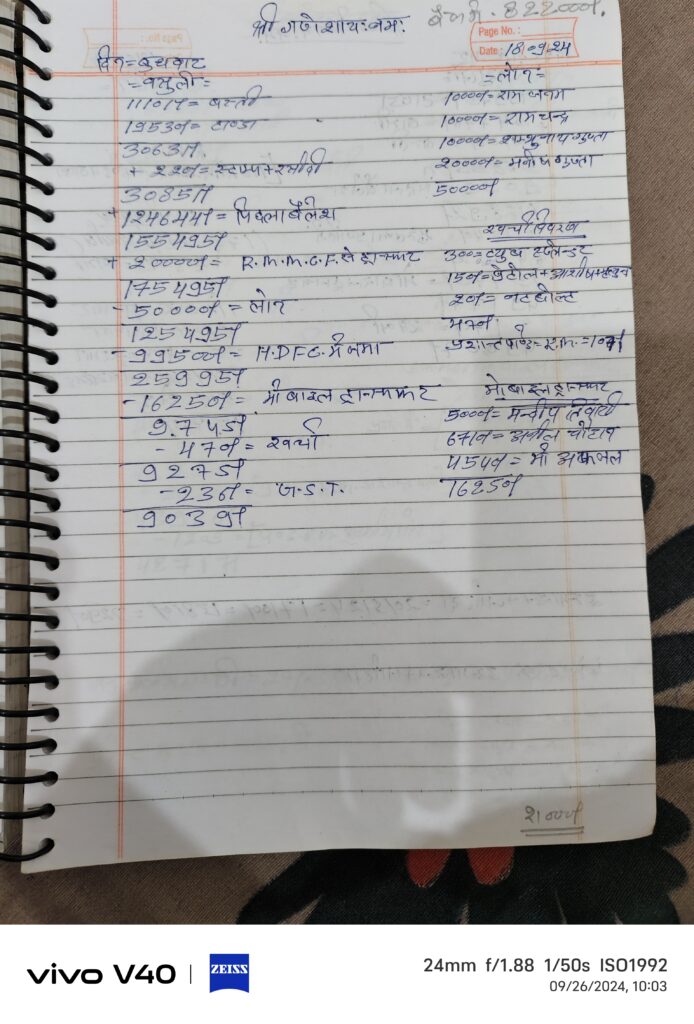 श्री गणेशाय: नम:
बैंक में. 822000/.
Page No.:
Date: 18-09-24
दिन = बुधवार
= वसुली =
11101/= बस्ती
19530/= टाण्डा
30631/.
+ 220/= स्टाम्प + रसीदी
30851/
+ 124644/= पिछला बैलेंस
155495/
+ 20000/= R.M.M.C.F. से ट्रान्सफर
175495/
- 50000/= लोन
125495/
- 99500/= H.D.F.C. में जमा
25995/
- 16250/= मोबाइल ट्रान्सफर
9745/
- 470/= खर्चा
9275/
- 236/= G.S.T.
9039/
= लोन =
10000/= राम जनम
10000/= रामचन्द्र
10000/= शम्भुनाथ गुप्ता
20000/= मनीष गुप्ता
50000/
खर्चा विवरण
300 =
150/= पेट्रोल +
20/= नटबोल्ट
470/
मोबाइल ट्रान्सफर
5000/= मन्दीप तिवारी
6710/= अनील चौहान
4540/= मो अफजल
16250/
21000/
vivo V40 | ZEISS
24mm f/1.88 1/50s ISO1992
09/26/2024, 10:03